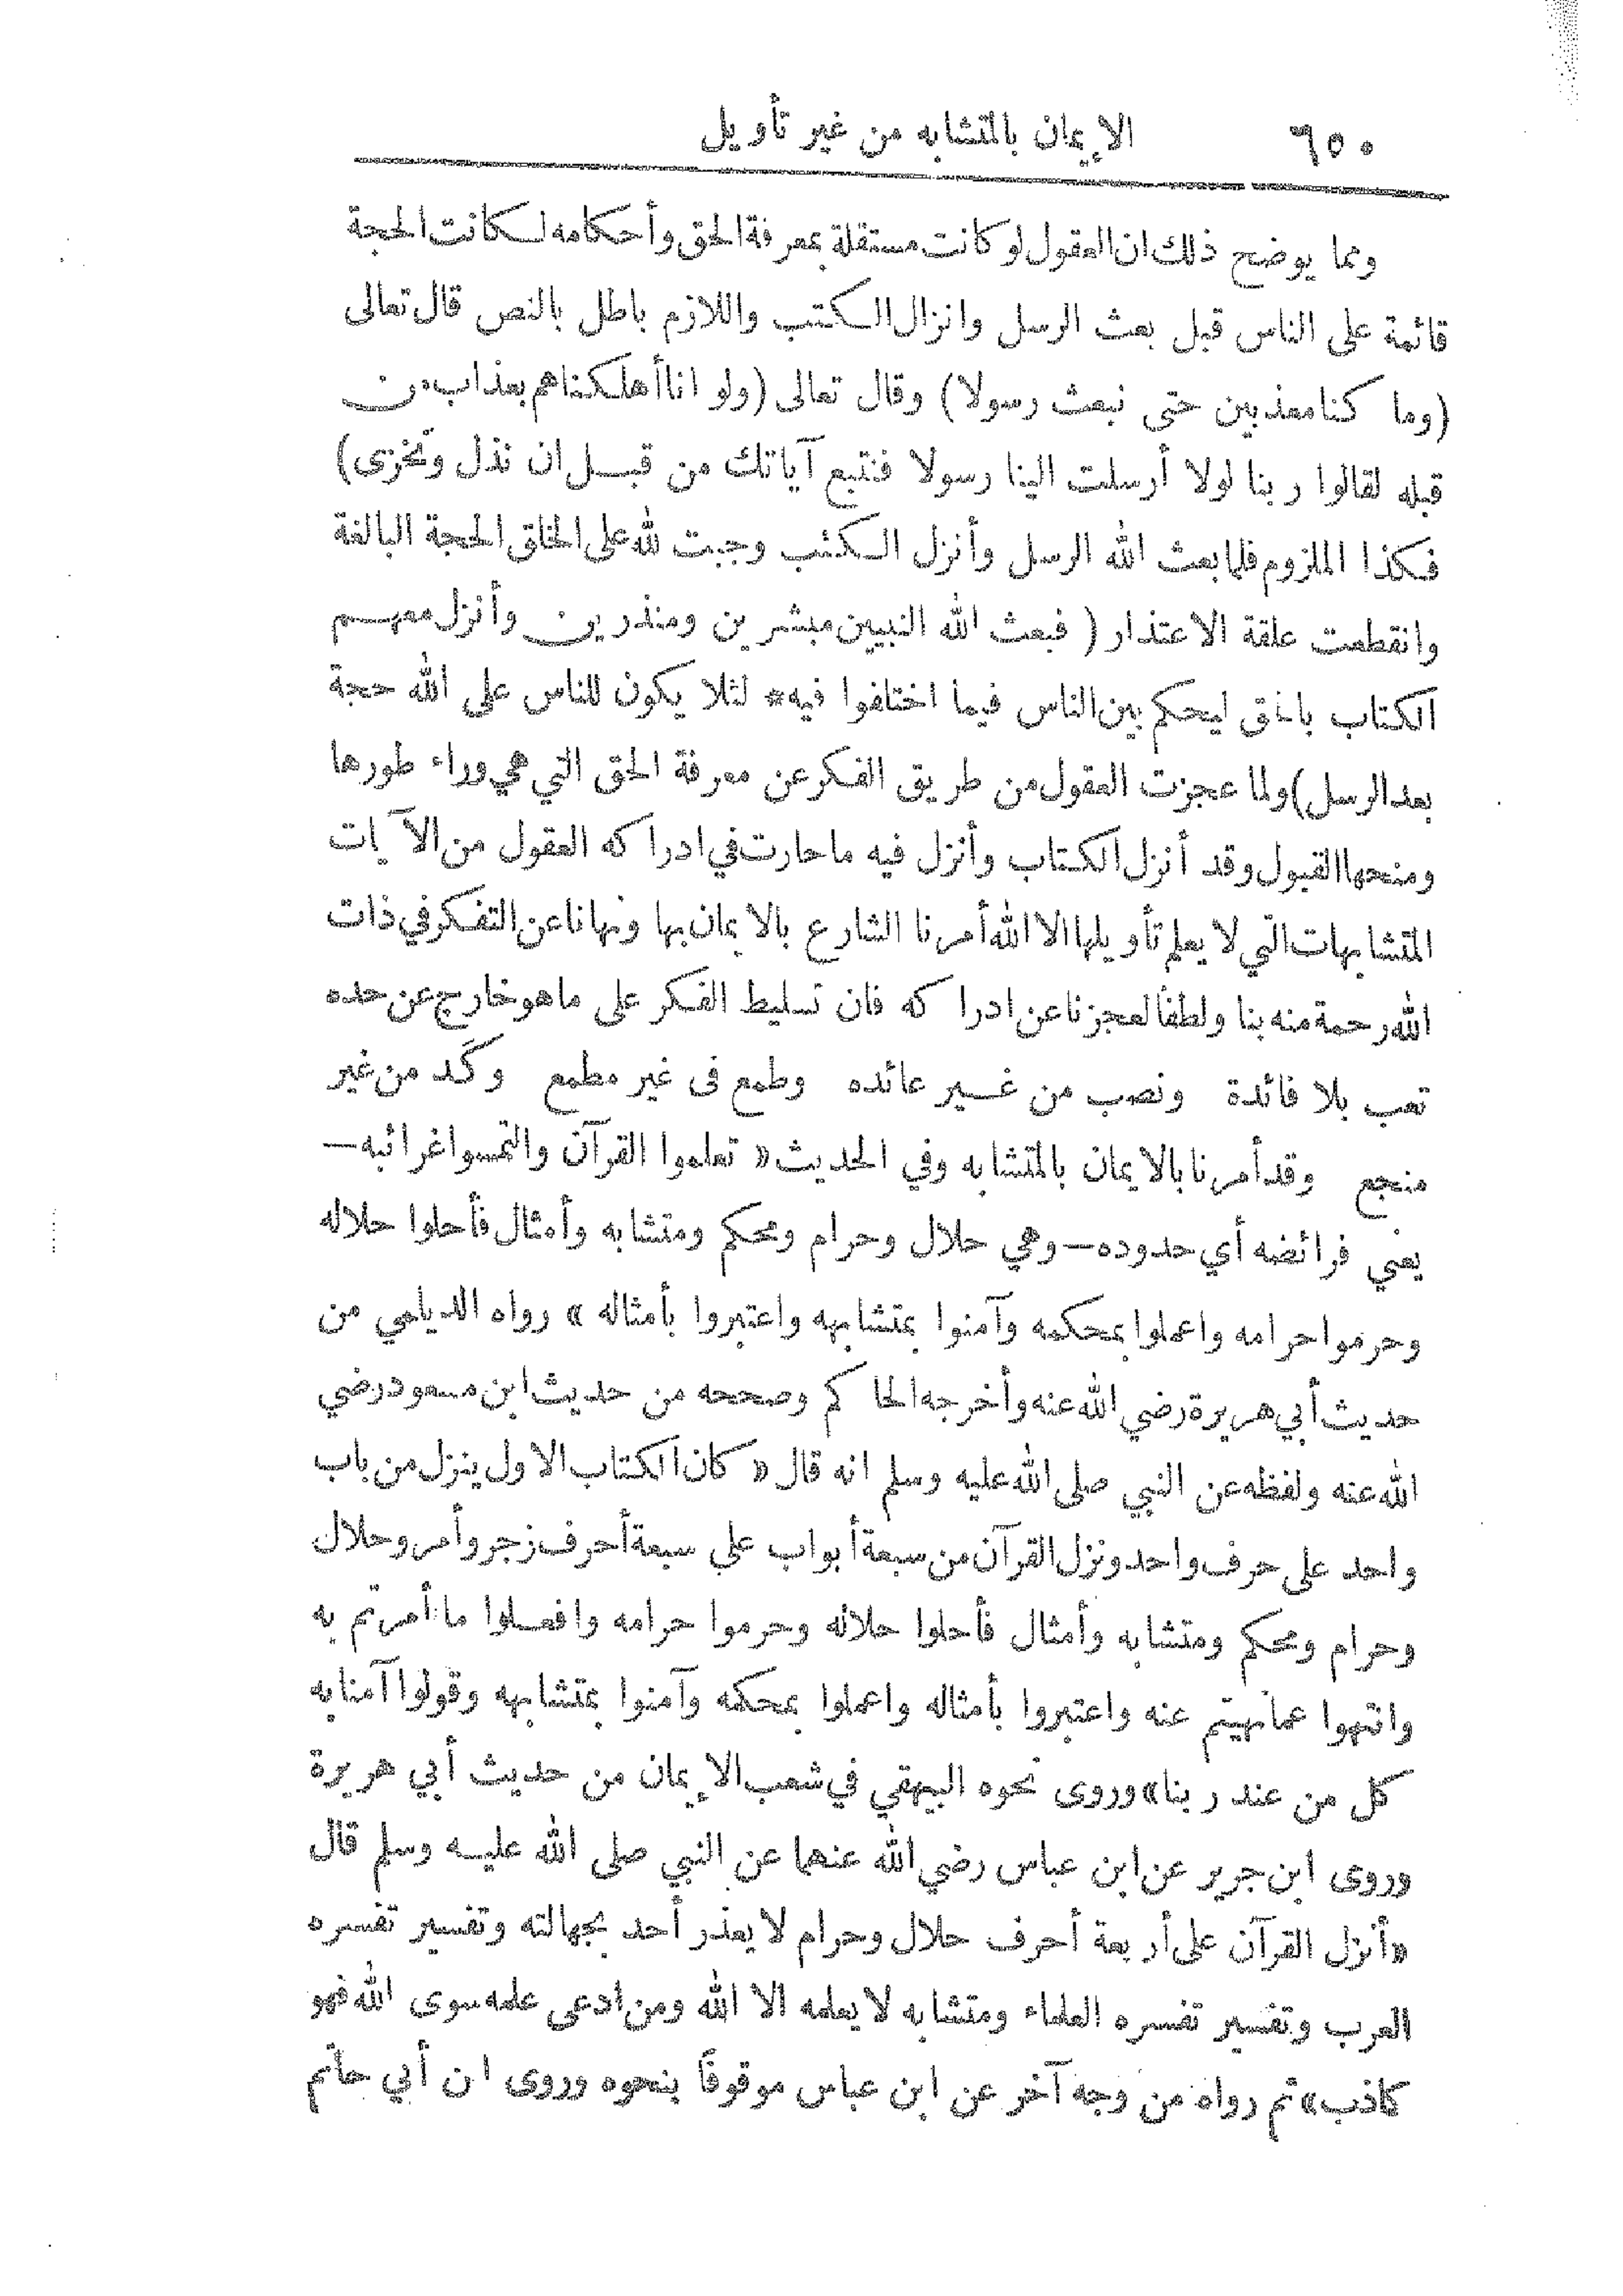 ٦٥٠ الإيمان بالمتشابه من غير تأويل
ومما يوضح ذلك ان العقول لو كانت مستقلة بمعرفة الحق وأحكامه لكانت الحجة
قائمة على الناس قبل بعث الرسل وانزال الكتب واللازم باطل بالنص قال تعالى
(وما كنا معذبين حتى نبعث رسولا) وقال تعالى (ولو انا أهلكناهم بعذاب من
قبله لقالوا ربنا لولا أرسلت الينا رسولا فنتبع آياتك من قبل ان نذل ونخزى)
فكذا الملزوم فلما بعث الله الرسل وأنزل الكتب وجبت لله على الخلق الحجة البالغة
وانقطعت علقة الاعتذار ( فبعث الله النبيين مبشرين ومنذرين وأنزل معهم
الكتاب بالحق ليحكم بين الناس فيما اختلفوا فيه* لئلا يكون للناس على الله حجة
بعد الرسل) ولما عجزت العقول من طريق الفكر عن معرفة الحق التي هي وراء طورها
ومنحها القبول وقد أنزل الكتاب وأنزل فيه ما حارت في ادراكه العقول من الآيات
المتشابهات التي لا يعلم تأويلها الا الله أمرنا الشارع بالايمان بها ونهانا عن التفكر في ذات
الله رحمة منه بنا ولطفاً لعجزنا عن ادراكه فان تسليط الفكر على ما هو خارج عن حده
تعب بلا فائدة ونصب من غير عائده وطمع فى غير مطمع وكد من غير
منجع وقد أمرنا بالايمان بالمتشابه وفي الحديث « تعلموا القرآن والتمسوا غرائبه —
يعني فرائضه أي حدوده — وهي حلال وحرام ومحكم ومتشابه وأمثال فأحلوا حلاله
وحرموا حرامه واعملوا بمحكمه وآمنوا بمتشابهه واعتبروا بأمثاله » رواه الديلمي من
حديث أبي هريرة رضي الله عنه وأخرجه الحاكم وصححه من حديث ابن مسعود رضي
الله عنه ولفظه عن النبي صلى الله عليه وسلم انه قال « كان الكتاب الاول ينزل من باب
واحد على حرف واحد ونزل القرآن من سبعة أبواب على سبعة أحرف زجر وأمر وحلال
وحرام ومحكم ومتشابه وأمثال فأحلوا حلاله وحرموا حرامه وافعلوا ما أمرتم به
وانتهوا عما نهيتم عنه واعتبروا بأمثاله واعملوا بمحكمه وآمنوا بمتشابهه وقولوا آمنا به
كل من عند ربنا» وروى نحوه البيهقي في شعب الإيمان من حديث أبي هريرة
وروى ابن جرير عن ابن عباس رضي الله عنهما عن النبي صلى الله عليه وسلم قال
«أنزل القرآن على أربعة أحرف حلال وحرام لا يعذر أحد بجهالته وتفسير تفسره
العرب وتفسير تفسره العلماء ومتشابه لا يعلمه الا الله ومن ادعى علمه سوى الله فهو
كاذب» ثم رواه من وجه آخر عن ابن عباس موقوفاً بنحوه وروى ا ن أبي حاتم